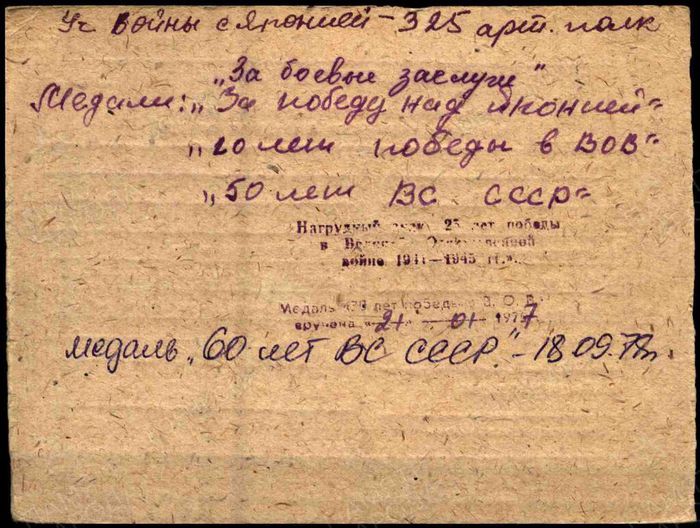 Уч войны с Японией - 325 арт. полк
„За боевые заслуги"
Медали: „За победу над Японией"
„20 лет победы в ВОВ"
„50 лет ВС СССР"
Нагрудный знак 25 лет победы
в Великой Отечественной
войне 1941—1945 гг.»
Медаль «30 лет победы В. О. В.»
вручена «21» 01 1977
медаль „60 лет ВС СССР" - 18.09.78г.